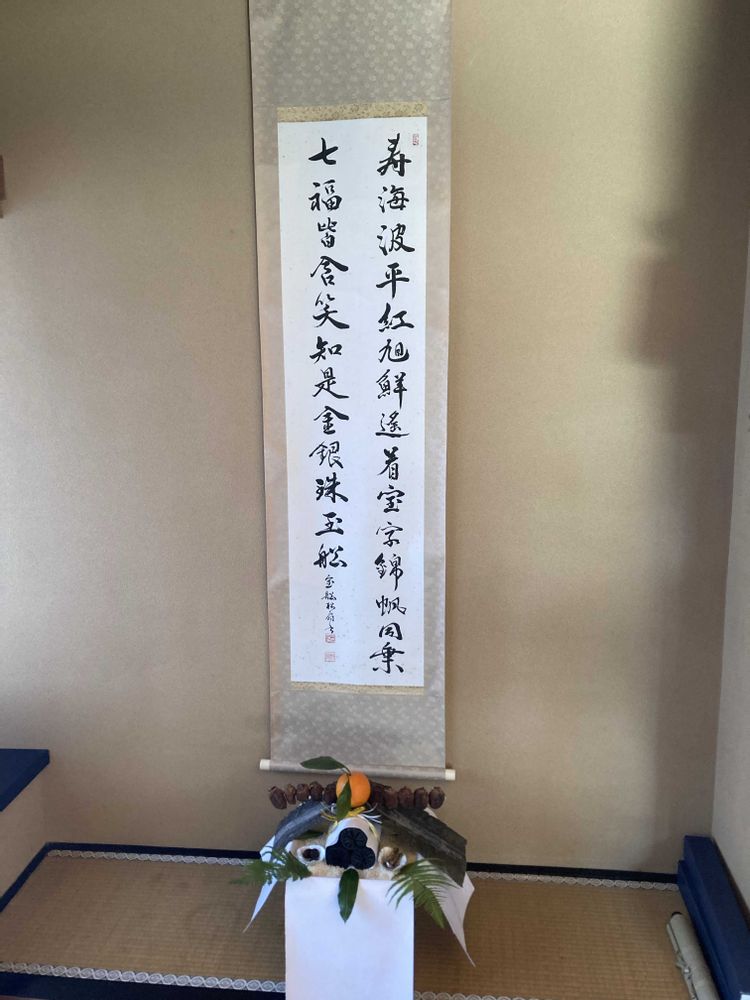 寿海波平紅旭鮮遙看宝字錦帆同乗
七福皆含笑知是金銀珠玉舩
宝舩